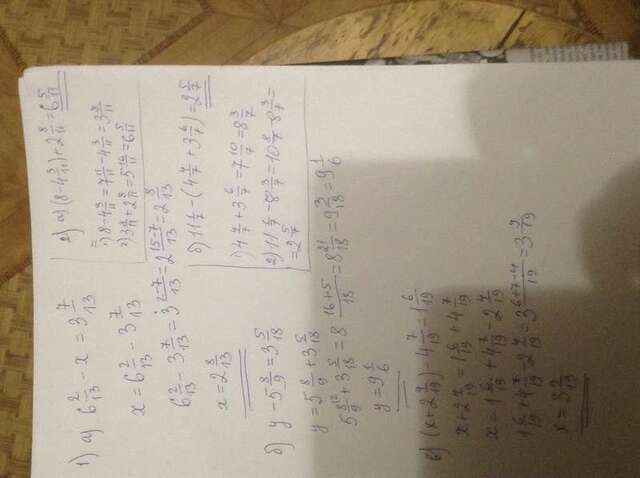 1) а) 6 2/13 - x = 3 7/13
x = 6 2/13 - 3 7/13
6 2/13 - 3 7/13 = 3 (2-7)/13 = 2 (15-7)/13 = 2 8/13
x = 2 8/13
б) y - 5 8/9 = 3 5/18
y = 5 8/9 + 3 5/18
5 8/9 + 3 5/18 = 8 (16+5)/18 = 8 21/18 = 9 3/18 = 9 1/6
y = 9 1/6
в) (x + 2 4/19) - 4 7/19 = 1 6/19
x + 2 4/19 = 1 6/19 + 4 7/19
x = 1 6/19 + 4 7/19 - 2 4/19
1 6/19 + 4 7/19 - 2 4/19 = 3 (6+7-4)/19 = 3 9/19
x = 3 9/19
2) а) (8 - 4 3/11) + 2 8/11 = 6 5/11
=
1) 8 - 4 3/11 = 7 11/11 - 4 3/11 = 3 8/11
2) 3 8/11 + 2 8/11 = 5 16/11 = 6 5/11
б) 11 1/7 - (4 4/7 + 3 6/7) = 2 5/7
1) 4 4/7 + 3 6/7 = 7 10/7 = 8 3/7
2) 11 1/7 - 8 3/7 = 10 8/7 - 8 3/7 =
= 2 5/7